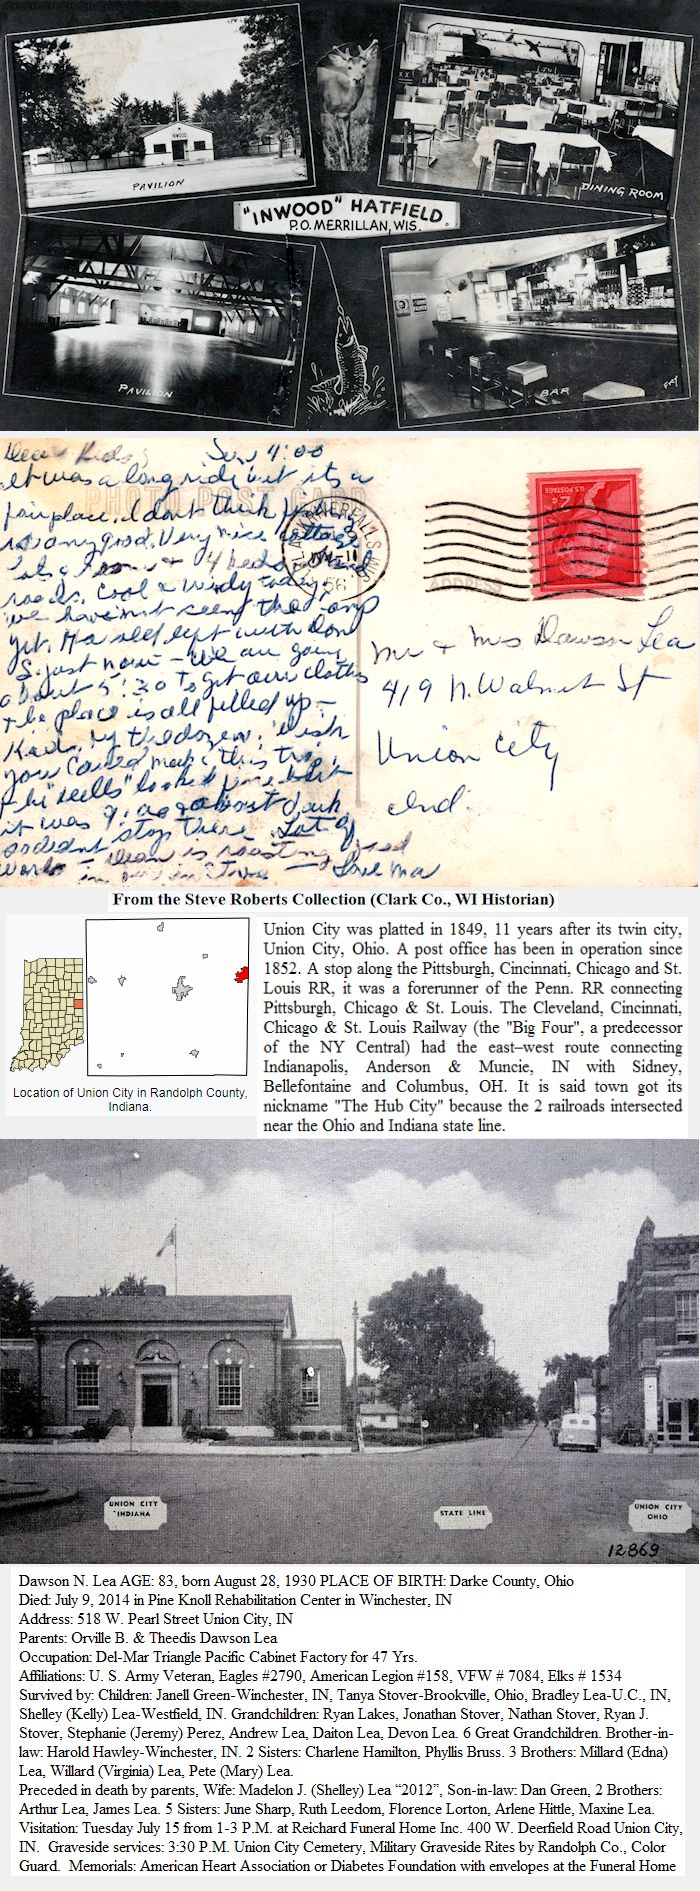 INWOOD
PAVILION
DINING ROOM
"INWOOD" HATFIELD
P.O. MERRILLAN, WIS.
PAVILION
BAR
Dear Kids, Sun 4:00
It was a long ride but its a
fair place. I dont think fishing
is any good. Very nice cottage
4 beds
roads. Cool & windy today
we have not seen the
yet. Ma self left with Don
S. just now - We are going
about 5:30 to get our clothes
the place is all filled up -
Kids by the dozen. Wish
you could make this trip,
the "dells" looked fine but
it was 9:00 & about dark
so didnt stop there. Lot of
work - Dean is roasting
Love Ma
PHOTO POST CARD
ADDRESS
U.S. POSTAGE 2¢
Mr & Mrs Dawson Lea
419 N. Walnut St
Union City
Ind.
From the Steve Roberts Collection (Clark Co., WI Historian)
Location of Union City in Randolph County,
Indiana.
Union City was platted in 1849, 11 years after its twin city,
Union City, Ohio. A post office has been in operation since
1852. A stop along the Pittsburgh, Cincinnati, Chicago and St.
Louis RR, it was a forerunner of the Penn. RR connecting
Pittsburgh, Chicago & St. Louis. The Cleveland, Cincinnati,
Chicago & St. Louis Railway (the "Big Four", a predecessor
of the NY Central) had the east–west route connecting
Indianapolis, Anderson & Muncie, IN with Sidney,
Bellefontaine and Columbus, OH. It is said town got its
nickname "The Hub City" because the 2 railroads intersected
near the Ohio and Indiana state line.
UNION CITY
INDIANA
STATE LINE
UNION CITY
OHIO
12869
Dawson N. Lea AGE: 83, born August 28, 1930 PLACE OF BIRTH: Darke County, Ohio
Died: July 9, 2014 in Pine Knoll Rehabilitation Center in Winchester, IN
Address: 518 W. Pearl Street Union City, IN
Parents: Orville B. & Theedis Dawson Lea
Occupation: Del-Mar Triangle Pacific Cabinet Factory for 47 Yrs.
Affiliations: U. S. Army Veteran, Eagles #2790, American Legion #158, VFW # 7084, Elks # 1534
Survived by: Children: Janell Green-Winchester, IN, Tanya Stover-Brookville, Ohio, Bradley Lea-U.C., IN,
Shelley (Kelly) Lea-Westfield, IN. Grandchildren: Ryan Lakes, Jonathan Stover, Nathan Stover, Ryan J.
Stover, Stephanie (Jeremy) Perez, Andrew Lea, Daiton Lea, Devon Lea. 6 Great Grandchildren. Brother-in-
law: Harold Hawley-Winchester, IN. 2 Sisters: Charlene Hamilton, Phyllis Bruss. 3 Brothers: Millard (Edna)
Lea, Willard (Virginia) Lea, Pete (Mary) Lea.
Preceded in death by parents, Wife: Madelon J. (Shelley) Lea “2012”, Son-in-law: Dan Green, 2 Brothers:
Arthur Lea, James Lea. 5 Sisters: June Sharp, Ruth Leedom, Florence Lorton, Arlene Hittle, Maxine Lea.
Visitation: Tuesday July 15 from 1-3 P.M. at Reichard Funeral Home Inc. 400 W. Deerfield Road Union City,
IN.  Graveside services: 3:30 P.M. Union City Cemetery, Military Graveside Rites by Randolph Co., Color
Guard.  Memorials: American Heart Association or Diabetes Foundation with envelopes at the Funeral Home